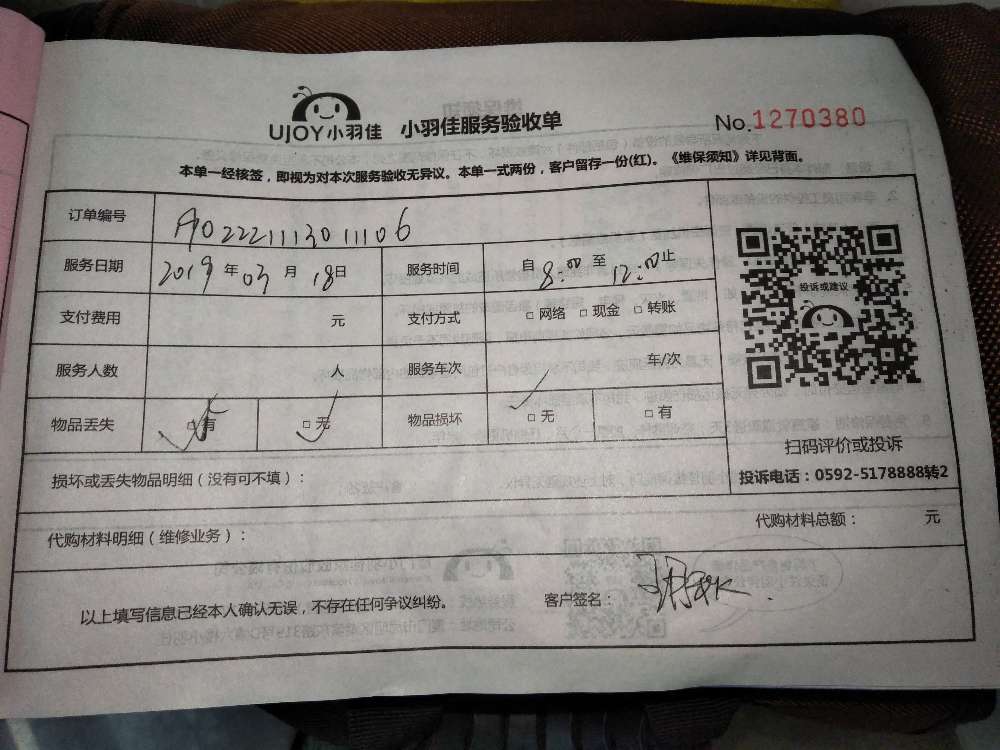 UJOY小羽佳 小羽佳服务验收单 No.1270380
本单一经核签，即视为对本次服务验收无异议。本单一式两份，客户留存一份(红)。《维保须知》详见背面。
订单编号 A02221113011106
服务日期 2019年03月18日 服务时间 自8:00至12:00止
支付费用 元 支付方式 □网络 □现金 □转账
服务人数 人 服务车次 车/次
物品丢失 □有 □无 物品损坏 □无 □有
投诉或建议
扫码评价或投诉
投诉电话：0592-5178888转2
损坏或丢失物品明细（没有可不填）：
代购材料明细（维修业务）： 代购材料总额： 元
以上填写信息已经本人确认无误，不存在任何争议纠纷。 客户签名：